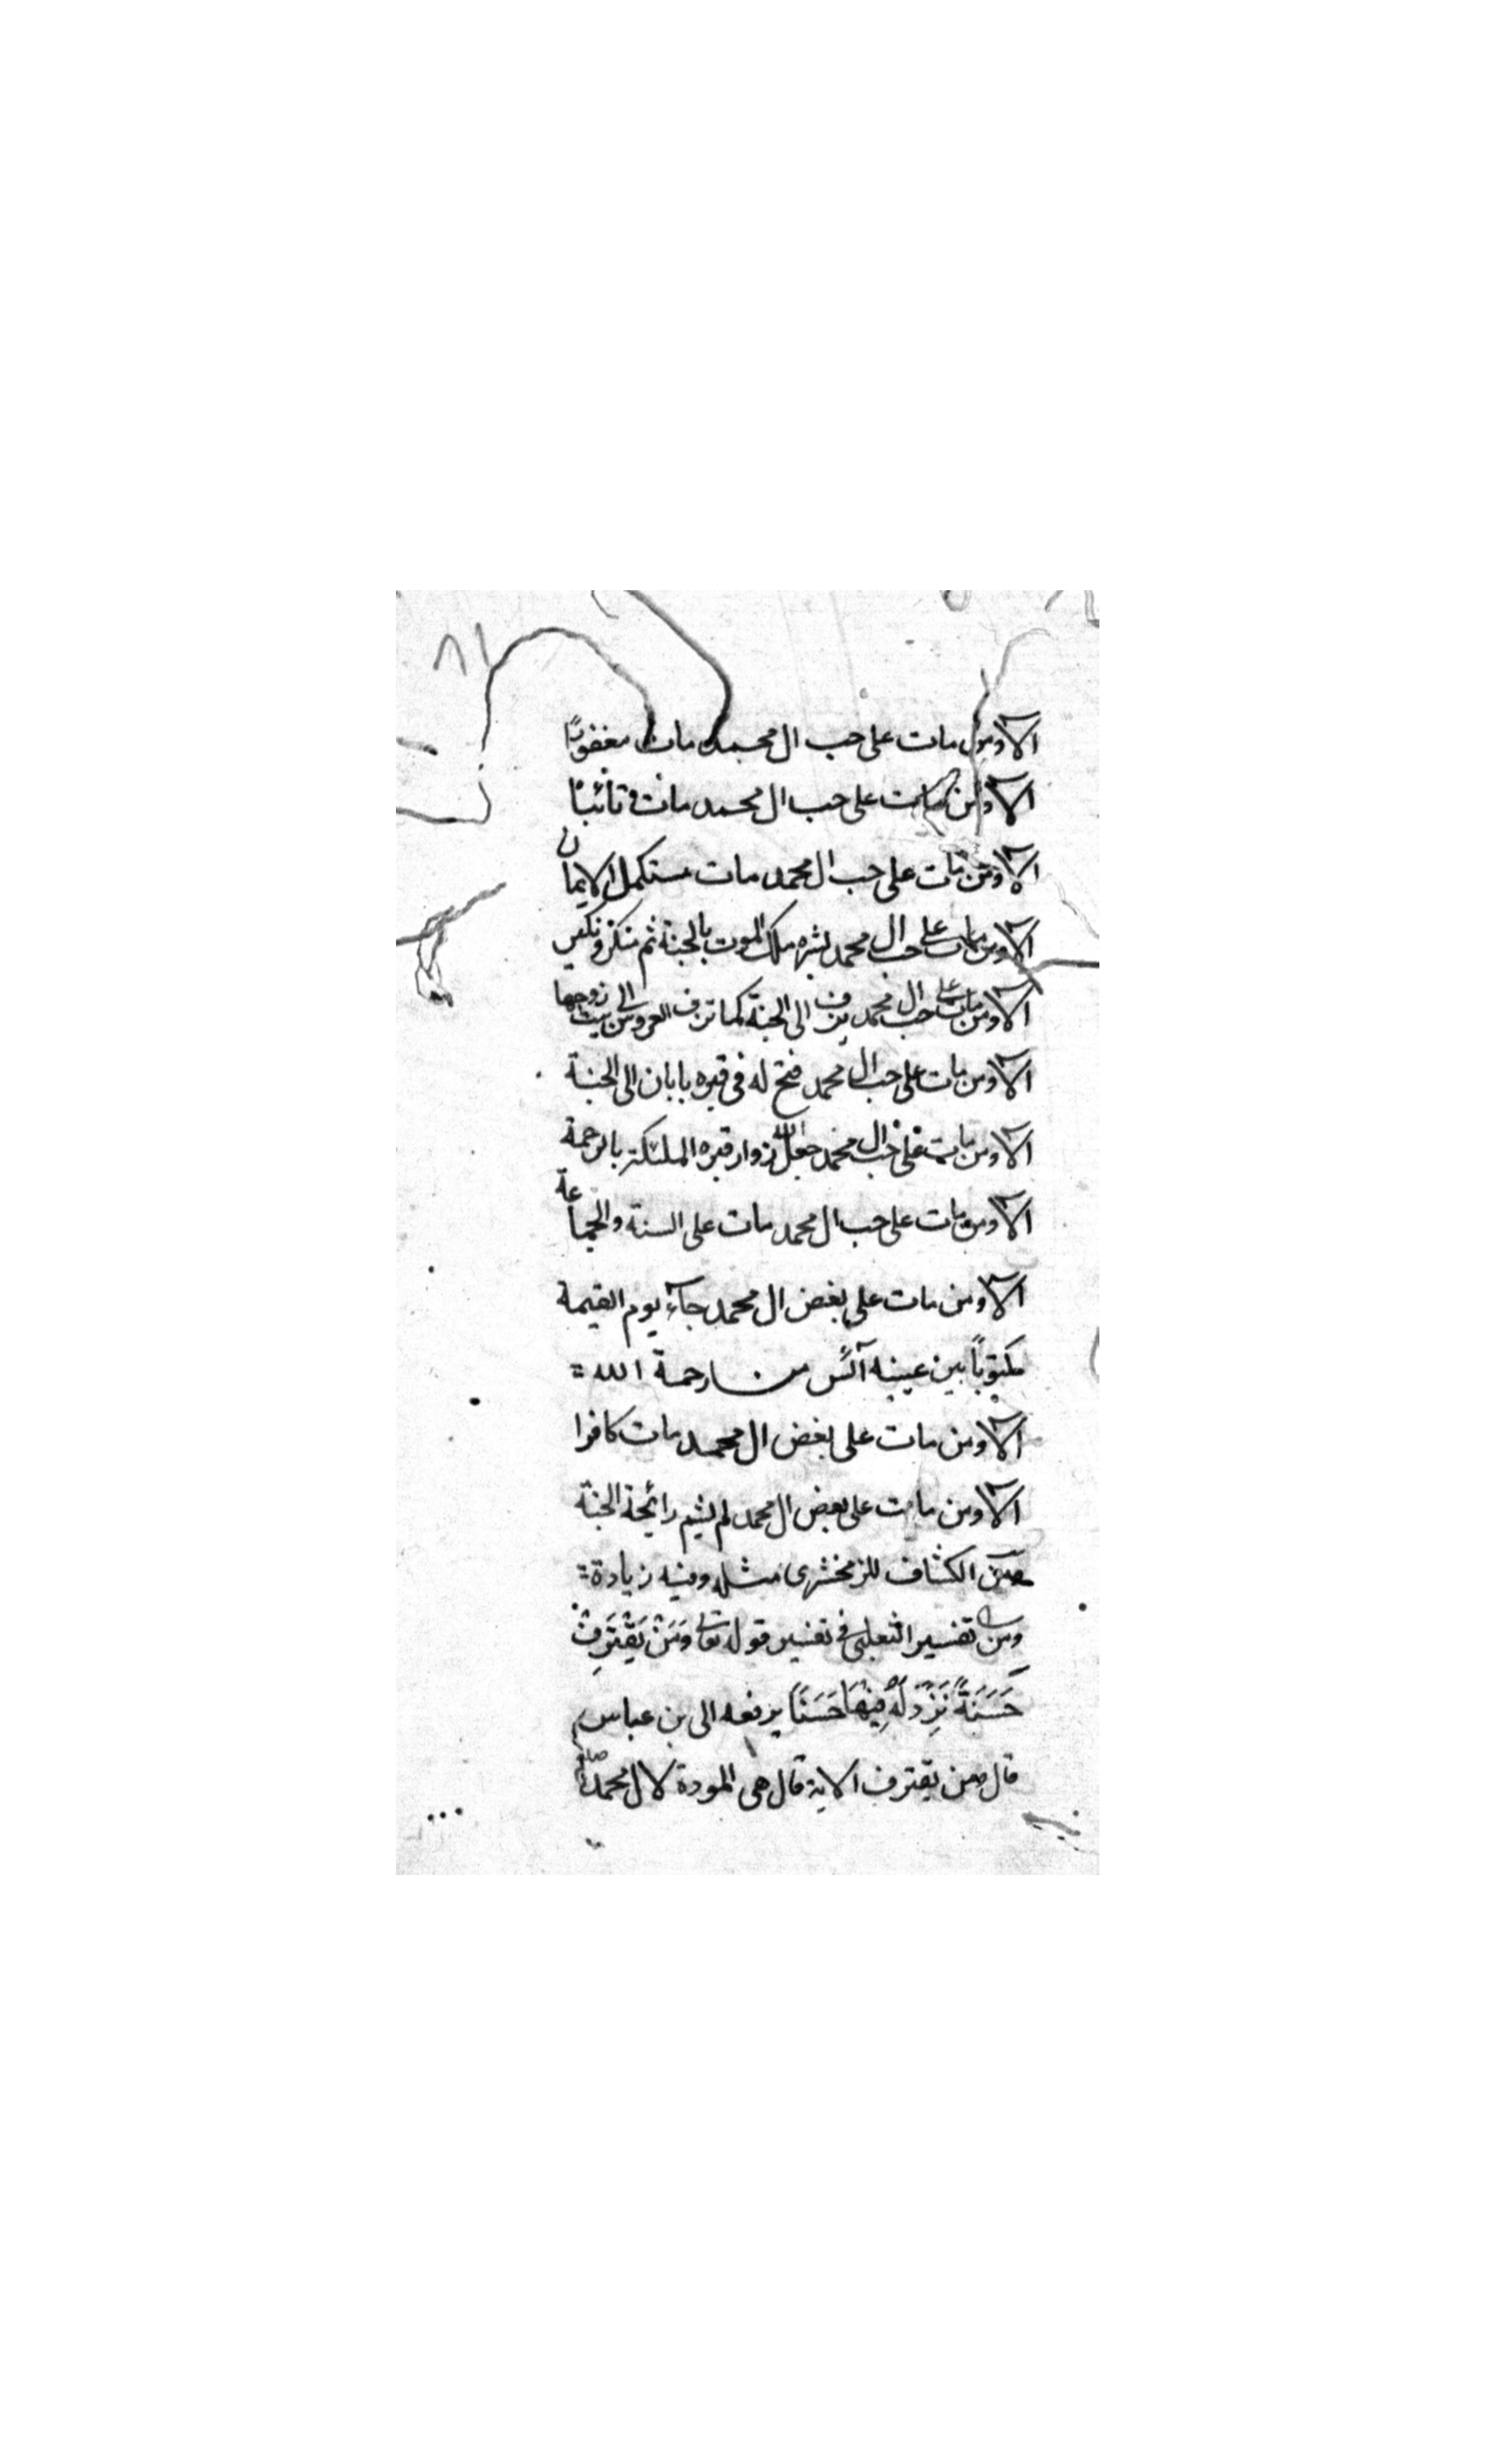 ٨١
الا ومن مات على حب ال محمد مات مغفورًا
الا ومن مات على حب ال محمد مات تائبًا
الا ومن مات على حب ال محمد مات مستكمل الايمان
الا ومن مات على حب ال محمد بشره ملك الموت بالجنة ثم منكر ونكير
الا ومن مات على حب ال محمد يزف الى الجنة كما تزف العروس الى بيت زوجها
الا ومن مات على حب ال محمد فتح له فى قبره بابان الى الجنة
الا ومن مات على حب ال محمد جعل الله زوار قبره الملئكة بالرحمة
الا ومن مات على حب ال محمد مات على السنة والجماعة
الا ومن مات على بغض ال محمد جآء يوم القيمة
مكتوبًا بين عينيه آئس من رحمة الله
الا ومن مات على بغض ال محمد مات كافرا
الا ومن مات على بغض ال محمد لم يشم رائحة الجنة
ومن الكشاف للزمخشرى مثله وفيه زيادة
ومن تفسير الثعلبى فى تفسير قوله تعالى وَمَنْ يَقْتَرِفْ
حَسَنَةً نَزِدْ لَهُ فِيهَا حَسَنًا يرفعه الى بن عباس
قال ومن يقترف الاية قال هى المودة لال محمد